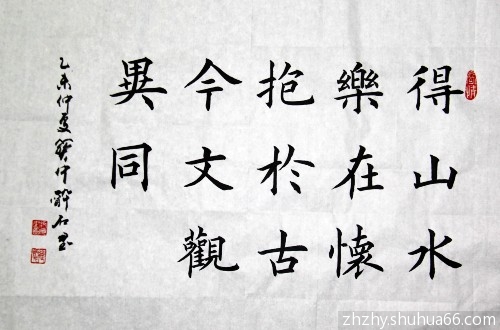 得山水
樂在懷
抱於古
今文觀
異同
乙未仲夏
zhzhy.shuhua66.com